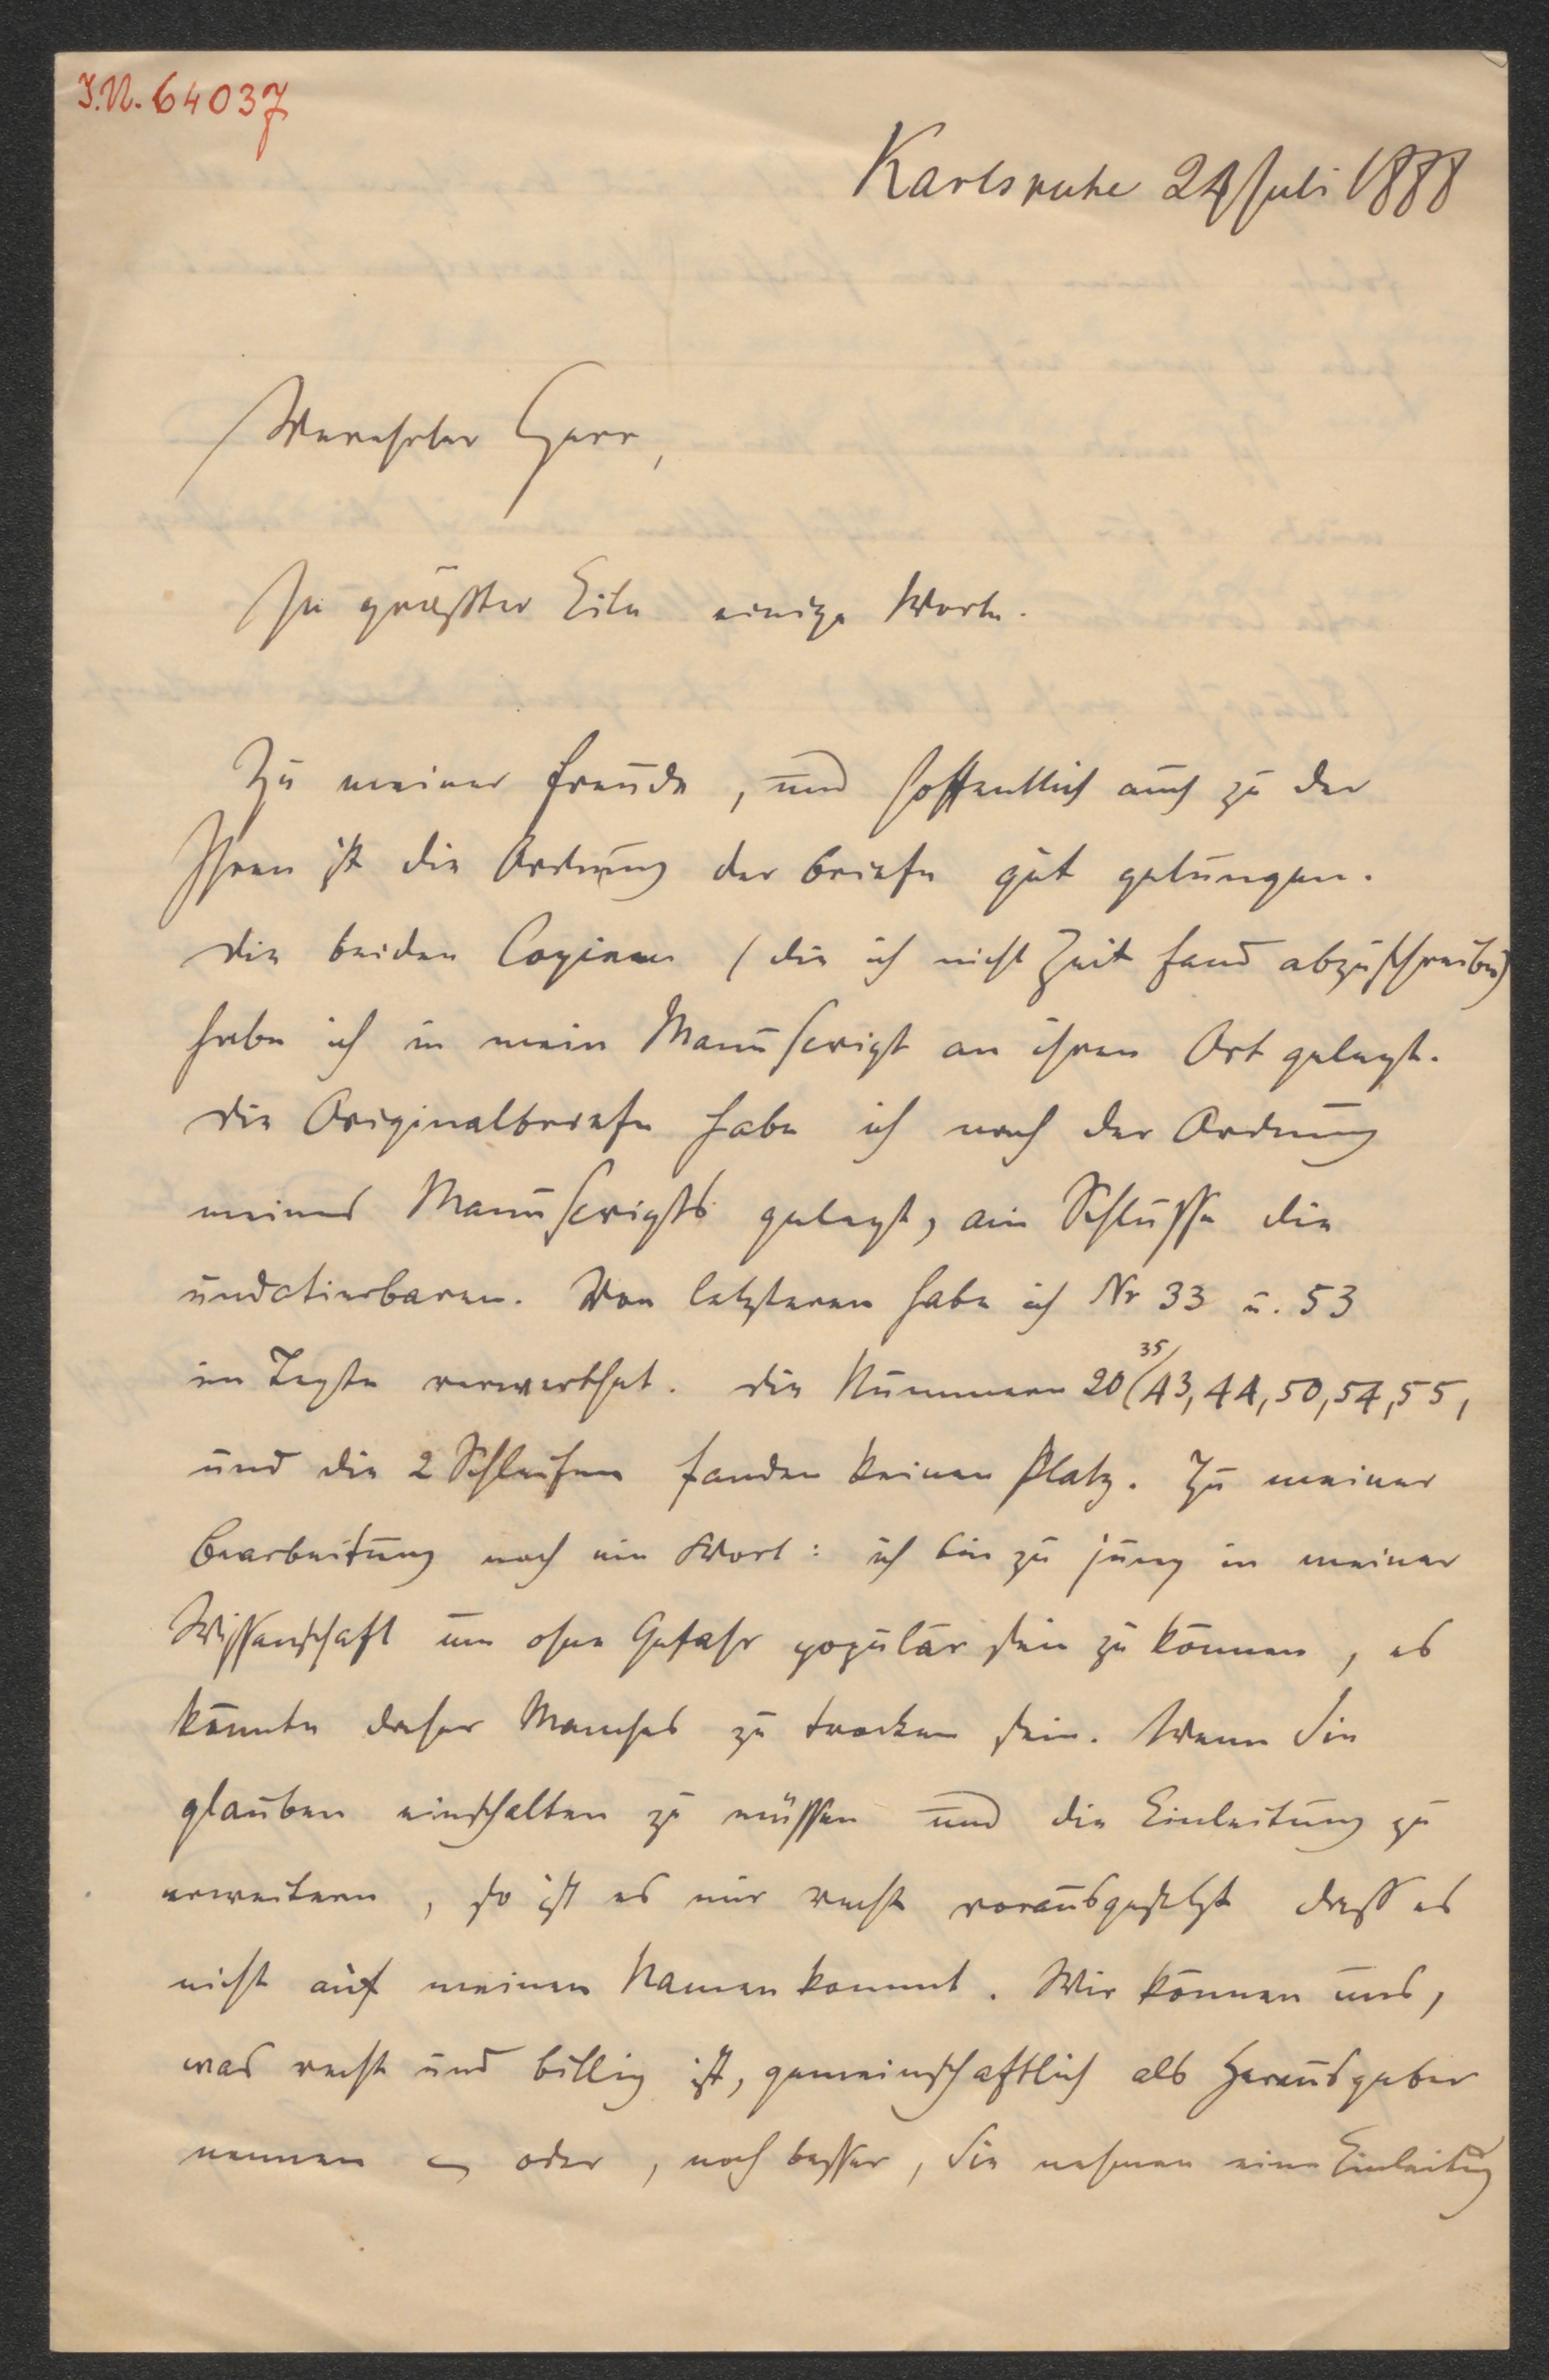 I.N. 64037
Karlsruhe 24 Juli 1888
Verehrter Herr,
In grösster Eile einige Worte.
Zu meiner Freude, und hoffentlich auch zu der
Ihren ist die Ordnung der Briefe gut gelungen.
Die beiden Copieen (die ich nicht Zeit fand abzuschreiben)
habe ich in mein Manuscript an ihren Ort gelegt.
Die Originalbriefe habe ich nach der Ordnung
meines Manuscripts gelegt, am Schlusse die
undatierbaren. Von letzteren habe ich Nr 33 u. 53
im Texte verwerthet. Die Nummern 20, 35, 43, 44, 50, 54, 55,
und die 2 Schleifen fanden keinen Platz. Zu meiner
Bearbeitung noch ein Wort: ich bin zu jung in meiner
Wissenschaft um ohne Gefahr populär sein zu können, es
könnte daher Manches zu trocken sein. Wenn Sie
glauben einschalten zu müssen und die Einleitung zu
erweitern, so ist es mir recht vorausgesetzt dass es
nicht auf meinen Namen kommt. Wir können uns,
was recht und billig ist, gemeinschaftlich als Herausgeber
nennen – oder, noch besser, Sie nehmen eine Einleitung